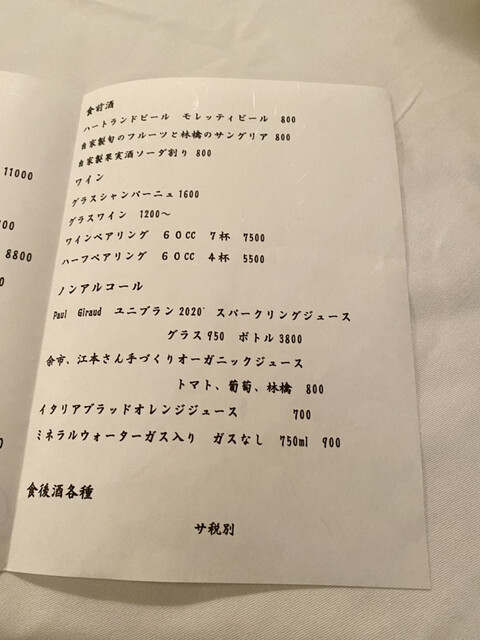 食前酒
ハートランドビール モレッティビール 800
自家製旬のフルーツと林檎のサングリア 800
自家製果実酒ソーダ割り 800
ワイン
グラスシャンパーニュ 1600
グラスワイン 1200～
ワインペアリング 60CC 7杯 7500
ハーフペアリング 60CC 4杯 5500
ノンアルコール
Paul Giraud ユニブラン 2020' スパークリングジュース
グラス 950 ボトル 3800
余市、江本さん手づくりオーガニックジュース
トマト、葡萄、林檎 800
イタリアブラッドオレンジジュース 700
ミネラルウォーターガス入り ガスなし 750ml 900
食後酒各種
サ税別
11000
8800